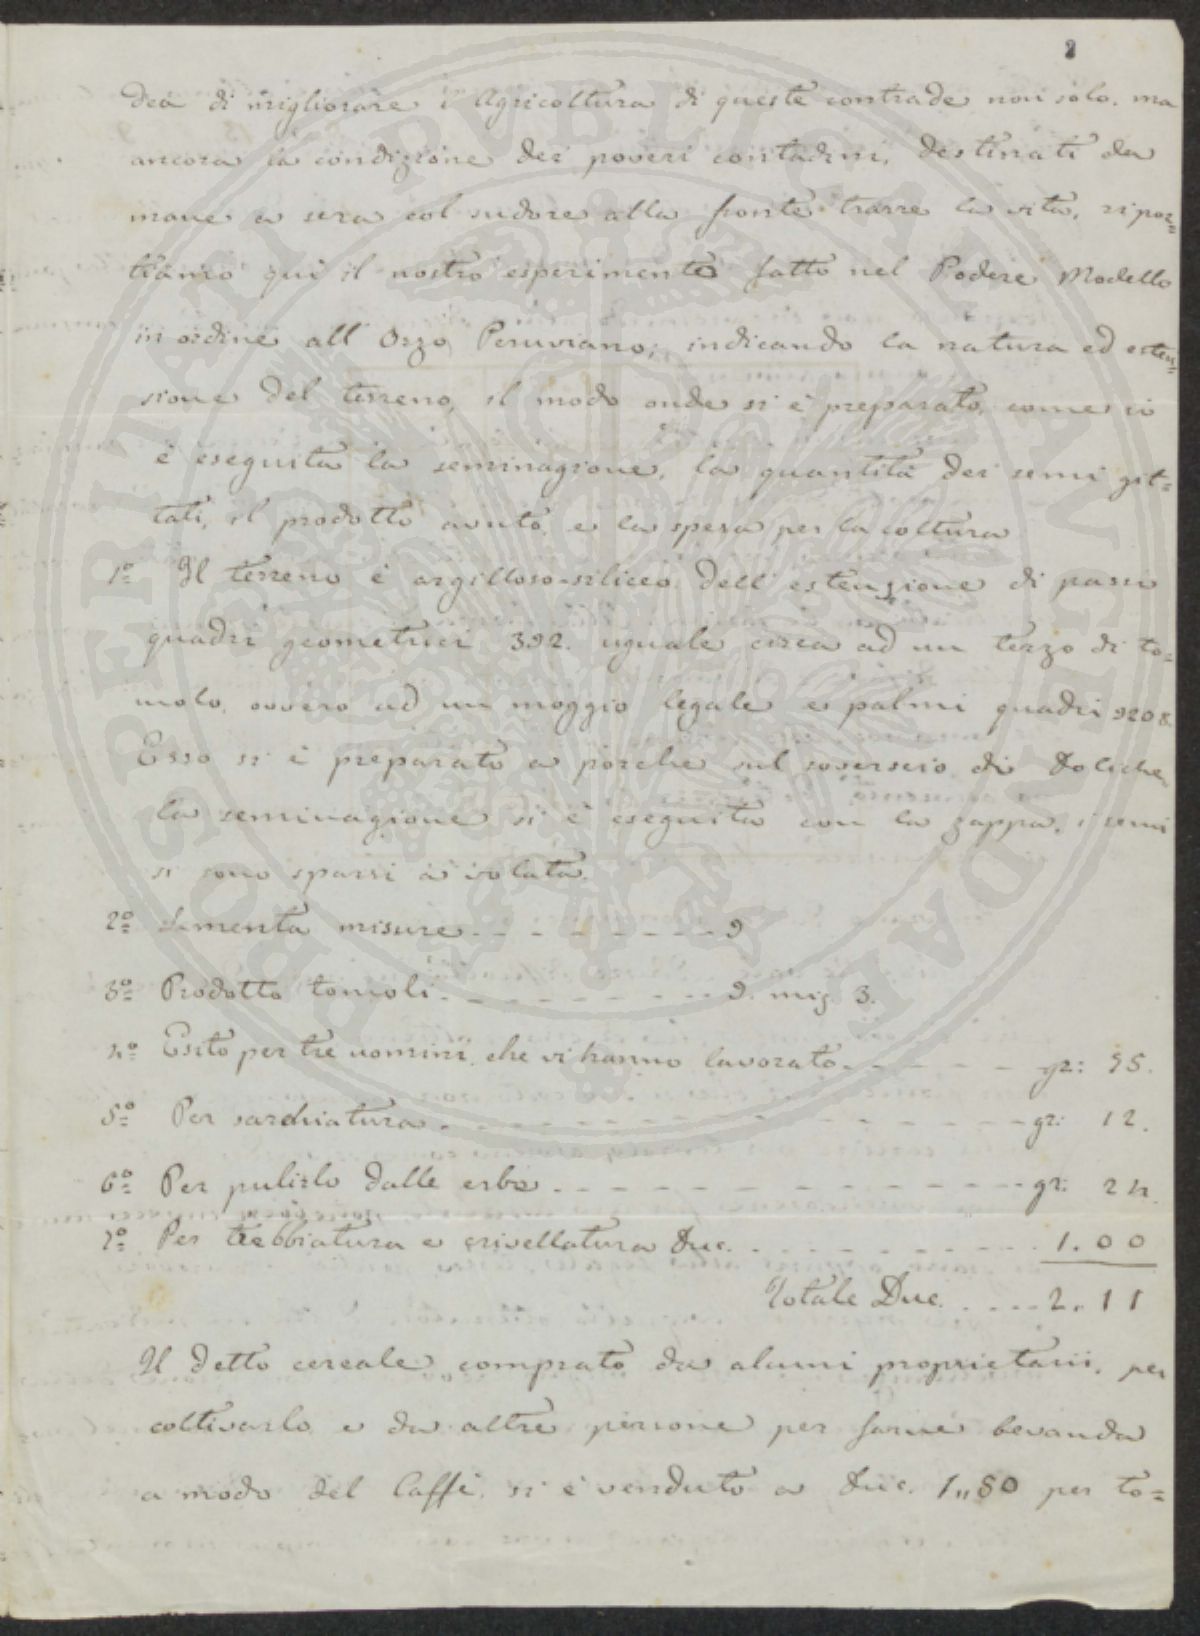 2
dea di migliorare l'Agricoltura di queste contrade non solo, ma
ancora la condizione dei poveri contadini, destinati da
mane a sera col sudore alla fronte trarre la vita, ripor=
tiamo qui il nostro esperimento fatto nel Podere Modello
in ordine all'Orzo Peruviano, indicando la natura ed esten=
sione del terreno, il modo onde si è preparato, come si
è eseguita la seminagione, la quantità dei semi git=
tati, il prodotto avuto, e la spesa per la coltura
1º Il terreno è argilloso-siliceo dell'estenzione di passi
quadri geometrici 392. uguale circa ad un terzo di to=
molo, ovvero ad un moggio legale e palmi quadri 9208.
Esso si è preparato a porche sul soverscio di Doliche,
la seminagione si è eseguita con la zappa, i semi
si sono sparsi a volata.
2º Sementa misure - - - - - - - - 9
3º Prodotto tomoli - - - - - - - - 9. mis. 3.
4º Esito per tre uomini che vi hanno lavorato - - - - - gr: 75.
5º Per sarchiatura - - - - - - - - - - - - gr: 12.
6º Per pulirlo dalle erbe - - - - - - - - - - - gr: 24.
7º Per trebbiatura e crivellatura Duc. - - - - - - - - 1.00
Totale Duc. - - - - 2.11
Il detto cereale comprato da alcuni proprietarii, per
coltivarlo e da altre persone per farne bevanda
a modo del Caffè, si è venduto a Duc. 1,,80 per to=
PROSPERITATI PVBLICAE AVGENDAE